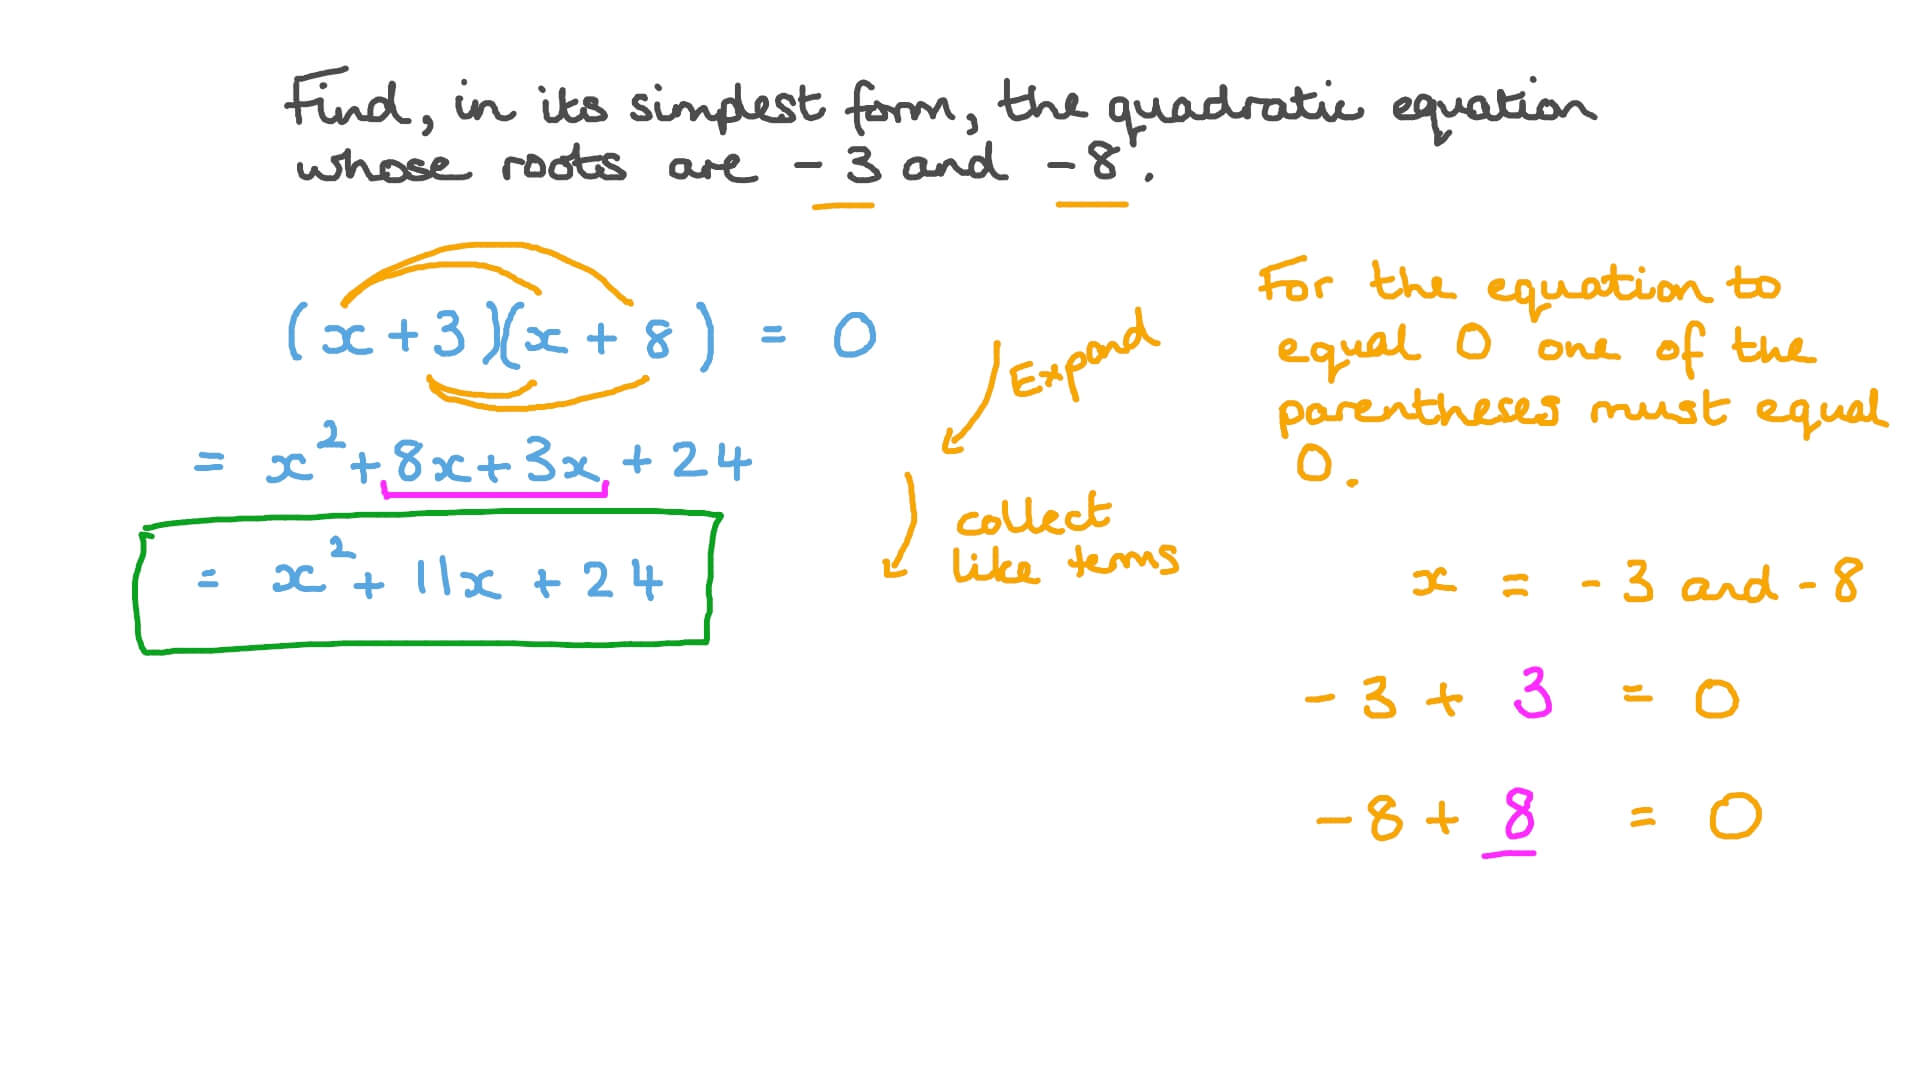 Find, in its simplest form, the quadratic equation
whose roots are -3 and -8.
(x+3)(x+8) = 0
= x²+8x+3x+24
= x²+11x+24
Expand
collect
like terms
For the equation to
equal 0 one of the
parentheses must equal
0.
x = -3 and -8
-3 + 3 = 0
-8 + 8 = 0